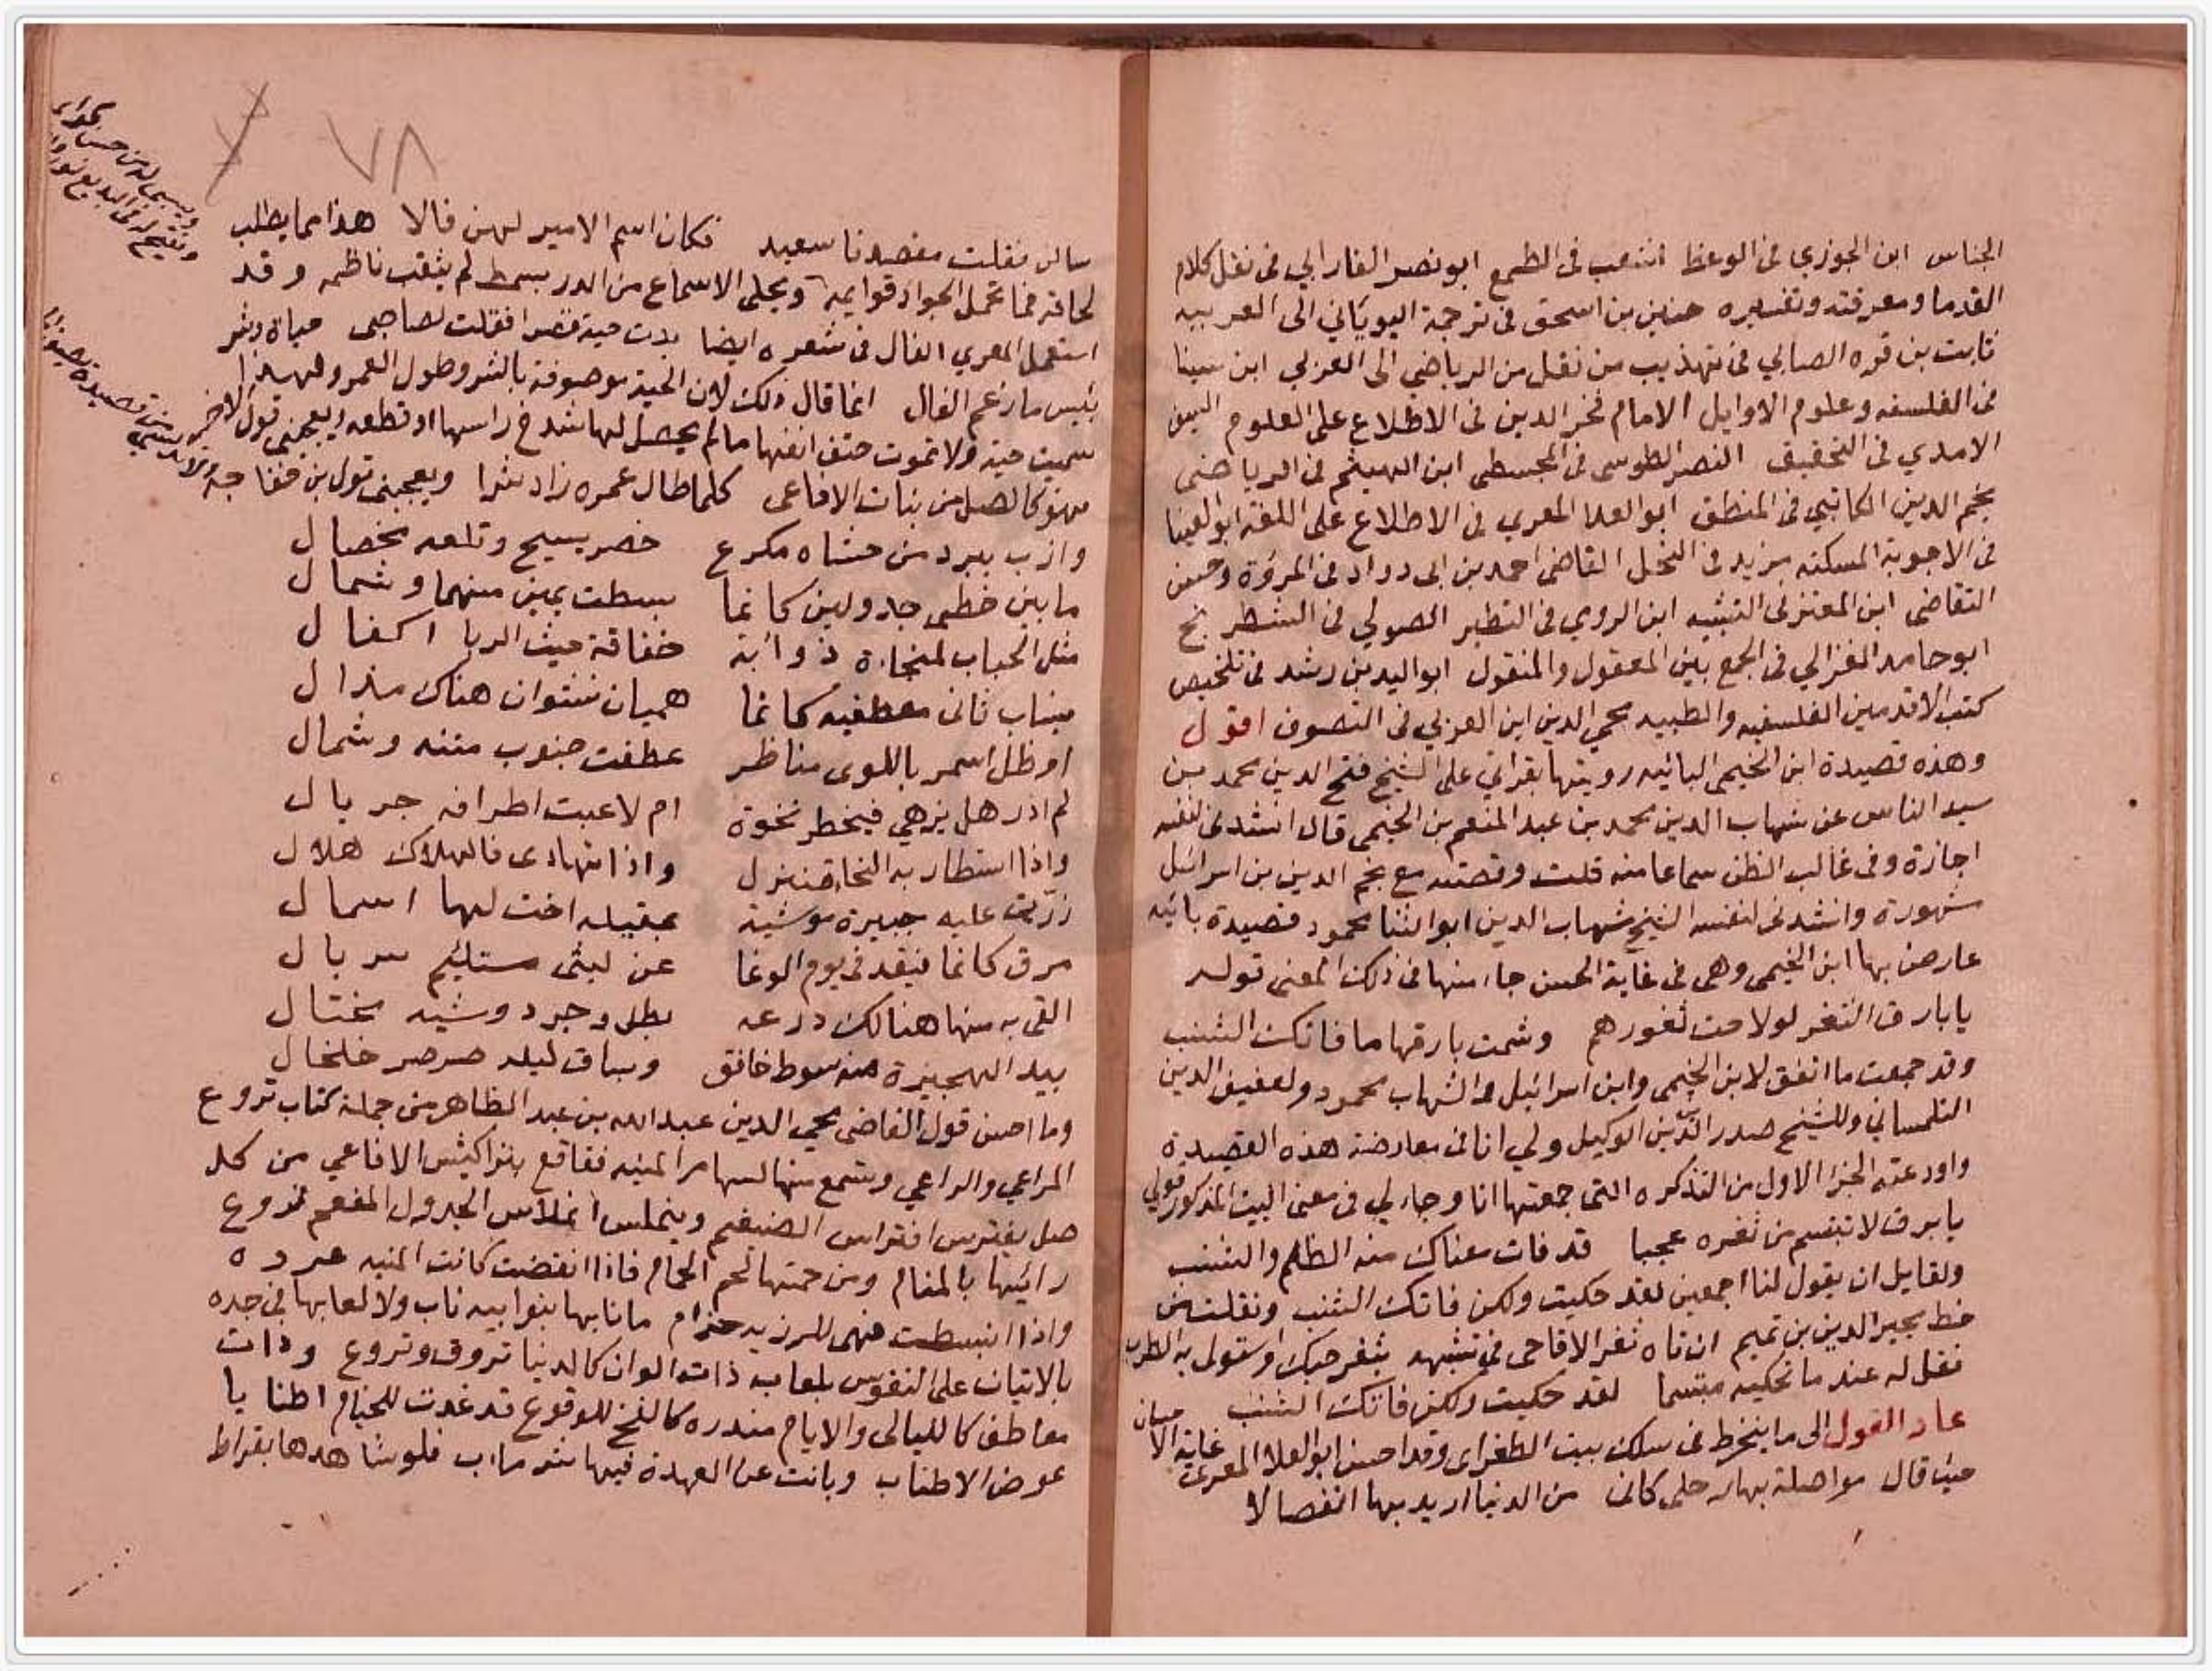 الجناس ابن الجوزي فى الوعظ اشعب فى الطمع ابو نصر الفارابي فى نقل كلام
القدما ومعرفته وتفسيره حنين بن اسحق فى ترجمة اليوناني الى العربيه
ثابت بن قره الصابي فى تهذيب من نقل من الرياضي الى العربي ابن سينا
فى الفلسفه وعلوم الاوايل الامام فخر الدين فى الاطلاع على العلوم السيف
الامدي فى التحقيق النصر الطوسى فى المجسطى ابن الهيثم فى الرياضى
نجم الدين الكاتبي فى المنطق ابو العلا المعري فى الاطلاع على اللغة ابو العينا
فى الاجوبة المسكته مزيد فى البخل القاضى احمد بن ابى دواد فى المروة وحسن
التقاضى ابن المعتز فى التشبيه ابن الرومي فى التطير الصولي فى الشطرنج
ابو حامد الغزالي فى الجمع بين المعقول والمنقول ابو اليد بن رشد فى تلخيص
كتب الاقدمين الفلسفيه والطبيه محي الدين ابن العربي فى التصوف اقول
وهذه قصيدة ابن الخيمى البائيه رويتها بقراتي على الشيخ فتح الدين محمد بن
سيد الناس عن شهاب الدين محمد بن عبد المنعم بن الخيمى قال انشدنى لنفسه
اجازة وفى غالب الظن سماعا منه قلت وقصته مع نجم الدين بن اسرائيل
مشهورة وانشدنى لنفسه الشيخ شهاب الدين ابو الثنا محمود قصيدة بائيه
عارض بها ابن الخيمى وهى فى غاية الحسن جاء منها فى ذلك المعنى قوله
يا بارق الثغر لو لاحت ثغورهم وشمت بارقها ما فاتك الشنب
وقد جمعت ما اتفق لابن الخيمى وابن اسرائيل والشهاب محمود ولعفيف الدين
التلمساني وللشيخ صدر الدين الوكيل ولي انا فى معارضة هذه القصيدة
واودعته الجزا الاول من التذكره التى جمعتها انا وجاء لي فى معنى البيت المذكور قولي
يا برق لا تبتسم من ثغره عجبا قد فات معناك منه الظلم والشنب
ولقايل ان يقول لنا اجمعين لقد حكيت ولكن فاتك الشنب ونقلت من
خط مجير الدين بن تميم ان تاه ثغر الاقاحى فى تشبهه بثغر حبك واستولى به الطرب
فقل له عند ما تحكيه مبتسما لقد حكيت ولكن فاتك الشنب
عاد القول الى ما ينخرط فى سلك بيت الطغراى وقد احسن ابو العلا المعرى غاية الاحسان
حيث قال مواصلة بها رحلى كانى من الدنيا اريد بها انفصالا
سالن فقلت مقصدنا سعيد فكان اسم الامير لهن فالا هذا مما يطلب
لحاقه فما تحمل الجواد قوايمه ويحلى الاسماع من الدر بسمط لم يثقب ناظمه وقد
استعمل المعري الفال فى شعره ايضا بدت حية قصرا فقلت لصاحبى حياة وشر
بئيس ما زعم الفال انما قال ذلك لان الحية موصوفة بالشر وطول العمر ولهذا
سميت حية ولا تموت حتف انفها ما لم يحصل لها شدخ راسها او قطعه ويعجبنى قول الاخر
فهو كالصل من بنات الافاعى كلما طال عمره زاد شرا ويعجبنى قول بن خفاجه
وازب ببرد من حشاه مكرع خضر يسيح وتلعه مخضال
ما بين خطى جدولين كانما بسطت يمين منهما وشمال
مثل الحباب لمنحاه ذوابة خفاقة حيث الربا اكفال
ينساب ثانى معطفيه كانما هميان نشوان هناك مذال
او ظل اسمر باللوى مناظر عطفت جنوب متنه وشمال
لم ادر هل يزهي فيخطر نخوة ام لاعبت اطرافه جريال
واذا استطار به النجا فنيزل واذا تهادى فالهلاك هلال
زرّت عليه حبيرة موشية بمقيله اخت لها اسمال
مرق كانما فيقد فى يوم الوغا عن ليثى مستليم سربال
القى به منها هنالك درعه بطل وجرد وشيه مختال
بيد الهجيرة منه سوط خافق وبساق ليله صرصر خلخال
وما احسن قول القاضى محيي الدين عبد الله بن عبد الظاهر من جملة كتاب تروع
المراعي والراعي وتسمع منها لسهام المنيه فقاقع بنواكيش الافاعي من كل
صل يفترس افتراس الضيغم وينملس انملاس الجدول المفعم تروع
رائيها بالمقام ومن حمتها لحم الحمام فاذا انقضت كانت المنيه عرده
واذا انبسطت فهى للرزيه حزام ما نابها بنوابيه ناب ولا لعابها فى جده
بالاتيان على النفوس بلعاب ذات الوان كالدنيا تروق وتروع وذات
معاطف كالليالى والايام منذره كالفخ للوقوع قد غدت للخيام اطنابا
عوض الاطناب وبانت عن العهدة فيها شر ماب فلو شاهدها بقراط
٧٨